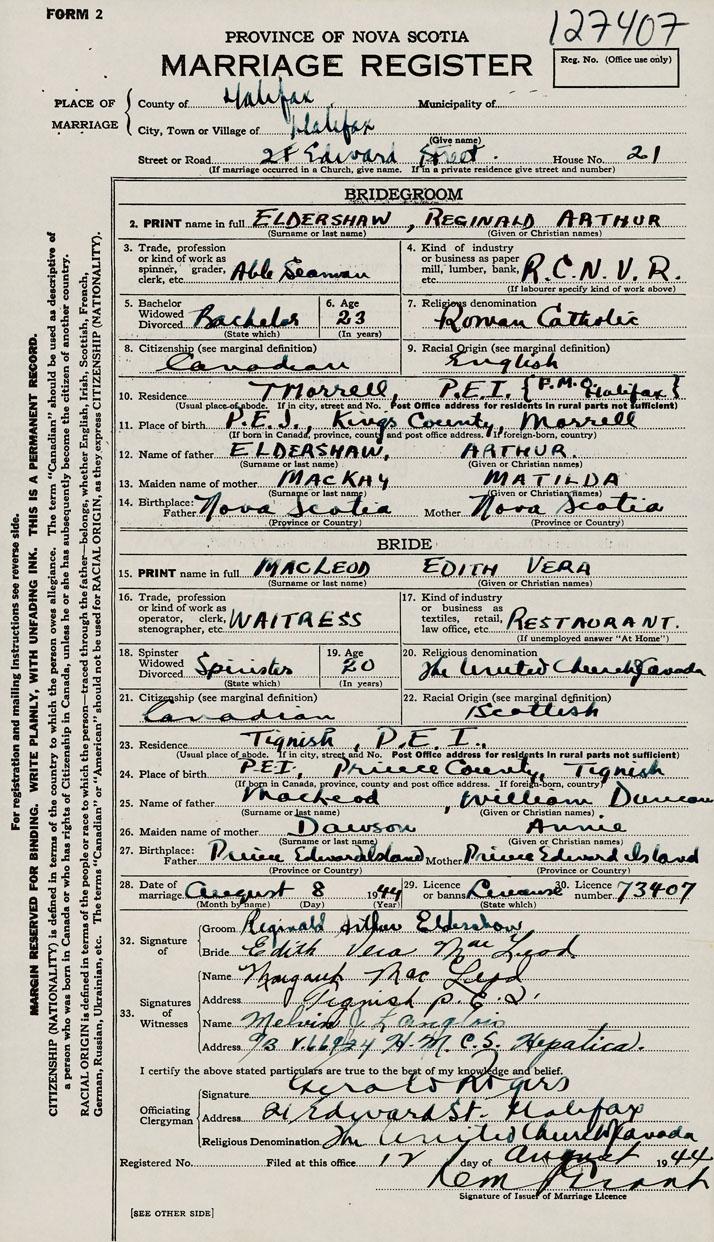 FORM 2
127407
PROVINCE OF NOVA SCOTIA
MARRIAGE REGISTER
Reg. No. (Office use only)
PLACE OF MARRIAGE
County of Halifax Municipality of
City, Town or Village of Halifax
(Give name)
Street or Road 21 Edward Street. House No. 21
(If marriage occurred in a Church, give name. If in a private residence give street and number)
BRIDEGROOM
2. PRINT name in full ELDERSHAW, REGINALD ARTHUR
(Surname or last name) (Given or Christian names)
3. Trade, profession or kind of work as spinner, grader, clerk, etc. Able Seaman
4. Kind of industry or business as paper mill, lumber, bank, etc. R.C.N.V.R.
(If labourer specify kind of work above)
5. Bachelor Widowed Divorced Bachelor
(State which)
6. Age 23
(In years)
7. Religious denomination
Roman Catholic
8. Citizenship (see marginal definition)
Canadian
9. Racial Origin (see marginal definition)
English
10. Residence Morrell, P.E.I. {F.M.O. Halifax}
(Usual place of abode. If in city, street and No. Post Office address for residents in rural parts not sufficient)
11. Place of birth P.E.I., Kings County, Morrell
(If born in Canada, province, county and post office address. If foreign-born, country)
12. Name of father ELDERSHAW, ARTHUR.
(Surname or last name) (Given or Christian names)
13. Maiden name of mother MACKAY MATILDA
(Surname or last name) (Given or Christian names)
14. Birthplace: Father Nova Scotia Mother Nova Scotia
(Province or Country) (Province or Country)
BRIDE
15. PRINT name in full MACLEOD EDITH VERA
(Surname or last name) (Given or Christian names)
16. Trade, profession or kind of work as operator, clerk, stenographer, etc. WAITRESS
17. Kind of industry or business as textiles, retail, law office, etc. RESTAURANT.
(If unemployed answer "At Home")
18. Spinster Widowed Divorced Spinster
(State which)
19. Age 20
(In years)
20. Religious denomination
The United Church of Canada
21. Citizenship (see marginal definition)
Canadian
22. Racial Origin (see marginal definition)
Scottish
23. Residence Tignish, P.E.I.,
(Usual place of abode. If in city, street and No. Post Office address for residents in rural parts not sufficient)
24. Place of birth P.E.I, Prince County, Tignish
(If born in Canada, province, county and post office address. If foreign-born, country)
25. Name of father MacLeod, William Duncan
(Surname or last name) (Given or Christian names)
26. Maiden name of mother Dawson Annie
(Surname or last name) (Given or Christian names)
27. Birthplace: Father Prince Edward Island Mother Prince Edward Island
(Province or Country) (Province or Country)
28. Date of marriage August 8 1944
(Month by name) (Day) (Year)
29. Licence or banns License
(State which)
30. Licence number 73407
32. Signature of
Groom Reginald Arthur Eldershaw
Bride Edith Vera MacLeod
33. Signatures of Witnesses
Name Margaret MacLeod
Address Tignish P.E.I.
Name Melvin J. Langlois
Address H.M.C.S. Hepatica.
I certify the above stated particulars are true to the best of my knowledge and belief.
Officiating Clergyman
Signature Gerald Rogers
Address 21 Edward St. Halifax
Religious Denomination The United Church of Canada
Registered No. Filed at this office 12 day of August 1944
Signature of Issuer of Marriage Licence
[SEE OTHER SIDE]
For registration and mailing instructions see reverse side.
MARGIN RESERVED FOR BINDING. WRITE PLAINLY, WITH UNFADING INK. THIS IS A PERMANENT RECORD.
CITIZENSHIP (NATIONALITY) is defined in terms of the country to which the person owes allegiance. The term "Canadian" should be used as descriptive of
a person who was born in Canada or who has rights of Citizenship in Canada, unless he or she has subsequently become the citizen of another country.
RACIAL ORIGIN is defined in terms of the people or race to which the person—traced through the father—belongs, whether English, Irish, Scottish, French,
German, Russian, Ukrainian, etc. The terms "Canadian" or "American" should not be used for RACIAL ORIGIN, as they express CITIZENSHIP (NATIONALITY).